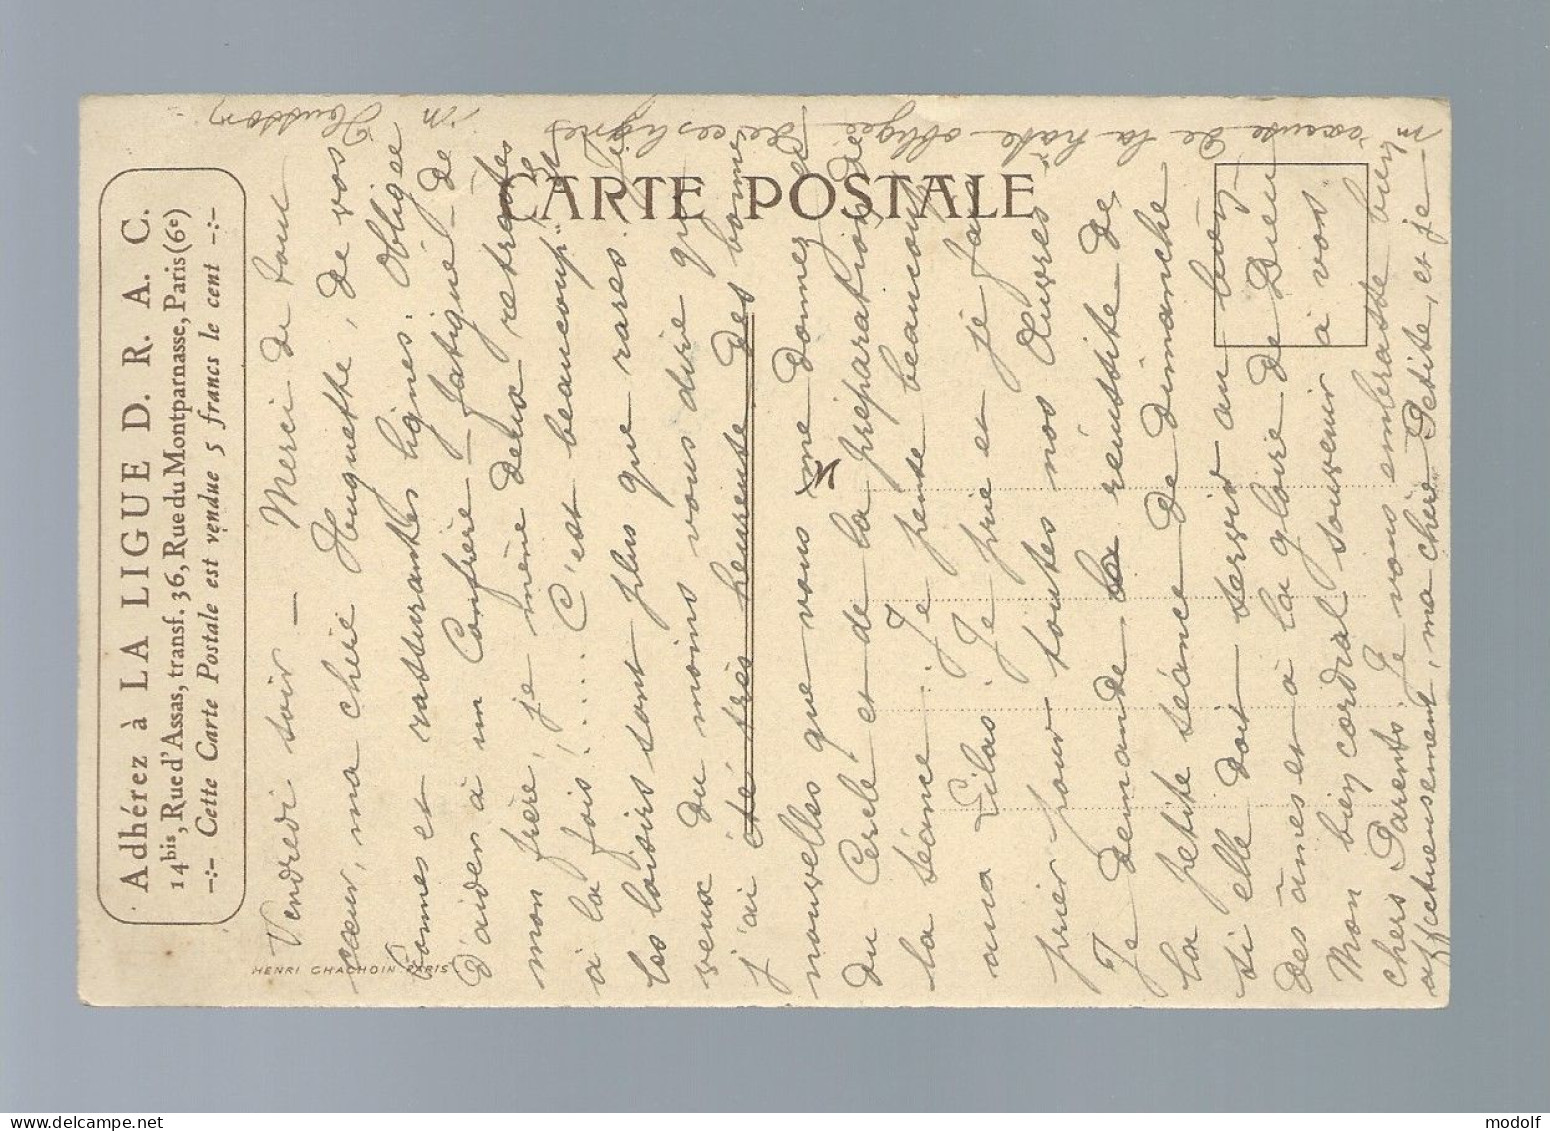 CARTE POSTALE
Adhérez à LA LIGUE D. R. A. C.
14bis, Rue d'Assas, transf. 36, Rue du Montparnasse, Paris (6e)
-:- Cette Carte Postale est vendue 5 francs le cent -:-
HENRI CHACHOIN PARIS
Vendredi soir — Merci de tout
cœur, ma chère Huguette, de vos
bonnes et rassurantes lignes. Obligée
d'aider à un Confrère — fatigué — de
mon frère, je mène deux retraites
à la fois!.... C'est beaucoup! et
les loisirs sont plus que rares. Je
veux du moins vous dire que
j'ai été très heureuse des bonnes
nouvelles que vous me donnez et
du Cercle et de la préparation de
la séance. Je pense beaucoup
aux Lilas. Je prie et je fais
prier pour toutes nos Œuvres
Je demande la réussite de
la petite séance de dimanche
si elle doit servir au bien
des âmes et à la gloire de Dieu
Mon bien cordial souvenir à vos
chers Parents. Je vous embrasse bien
affectueusement, ma chère Petite, et je
m'excuse de la hâte obligée de ces lignes
M Housson
modolf